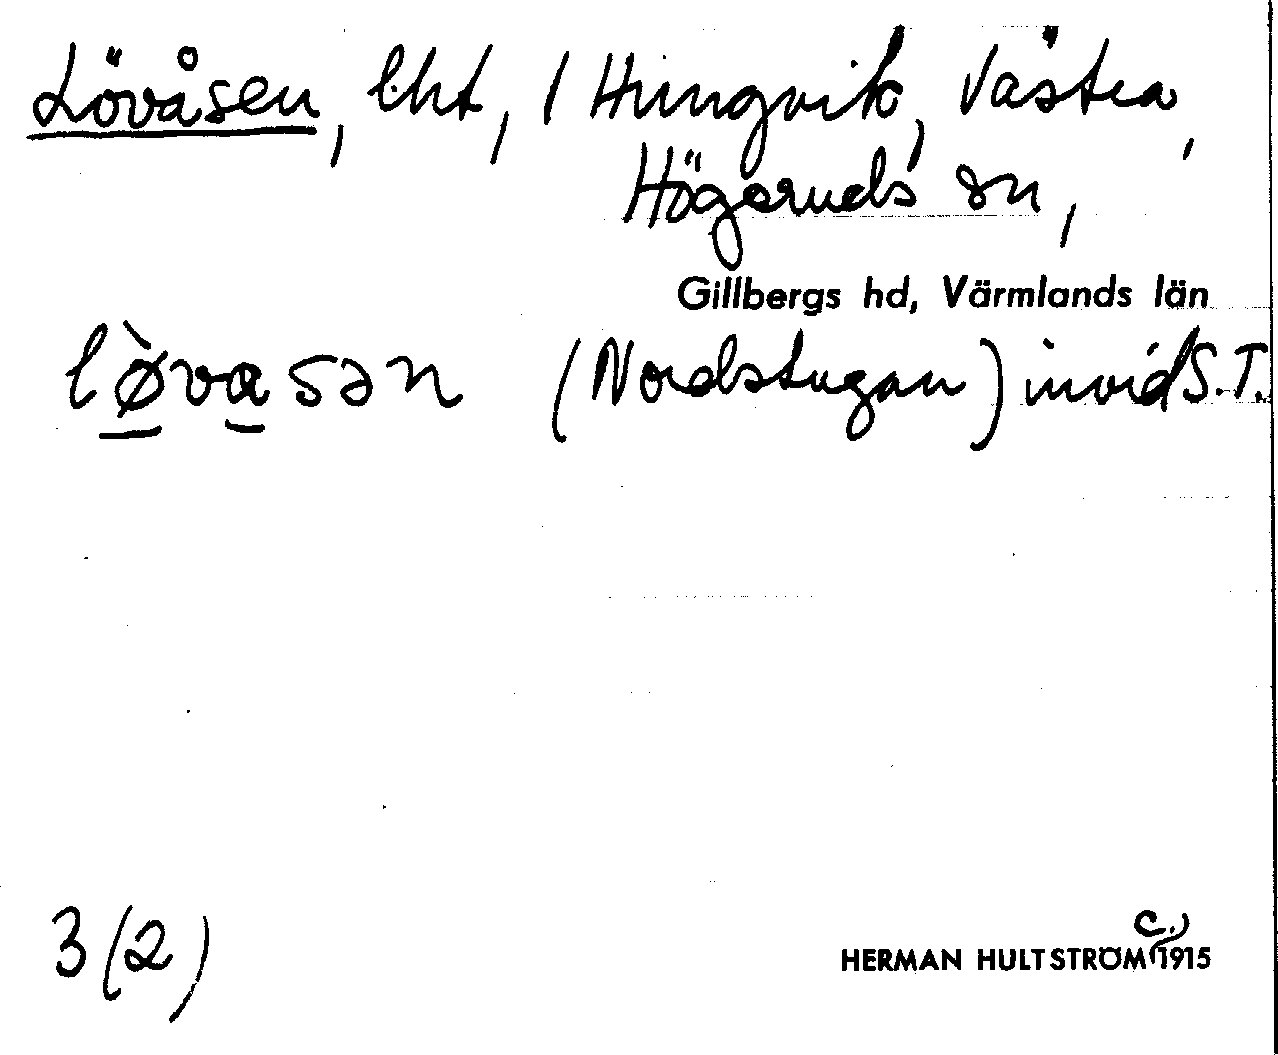 Lövåsen, lht, i Hungvik, Västra,
Högeruds sn,
Gillbergs hd, Värmlands län
lø̀vasən (Nordstugan) invid S.T.
3 (2)
HERMAN HULTSTRÖM (c.) 1915